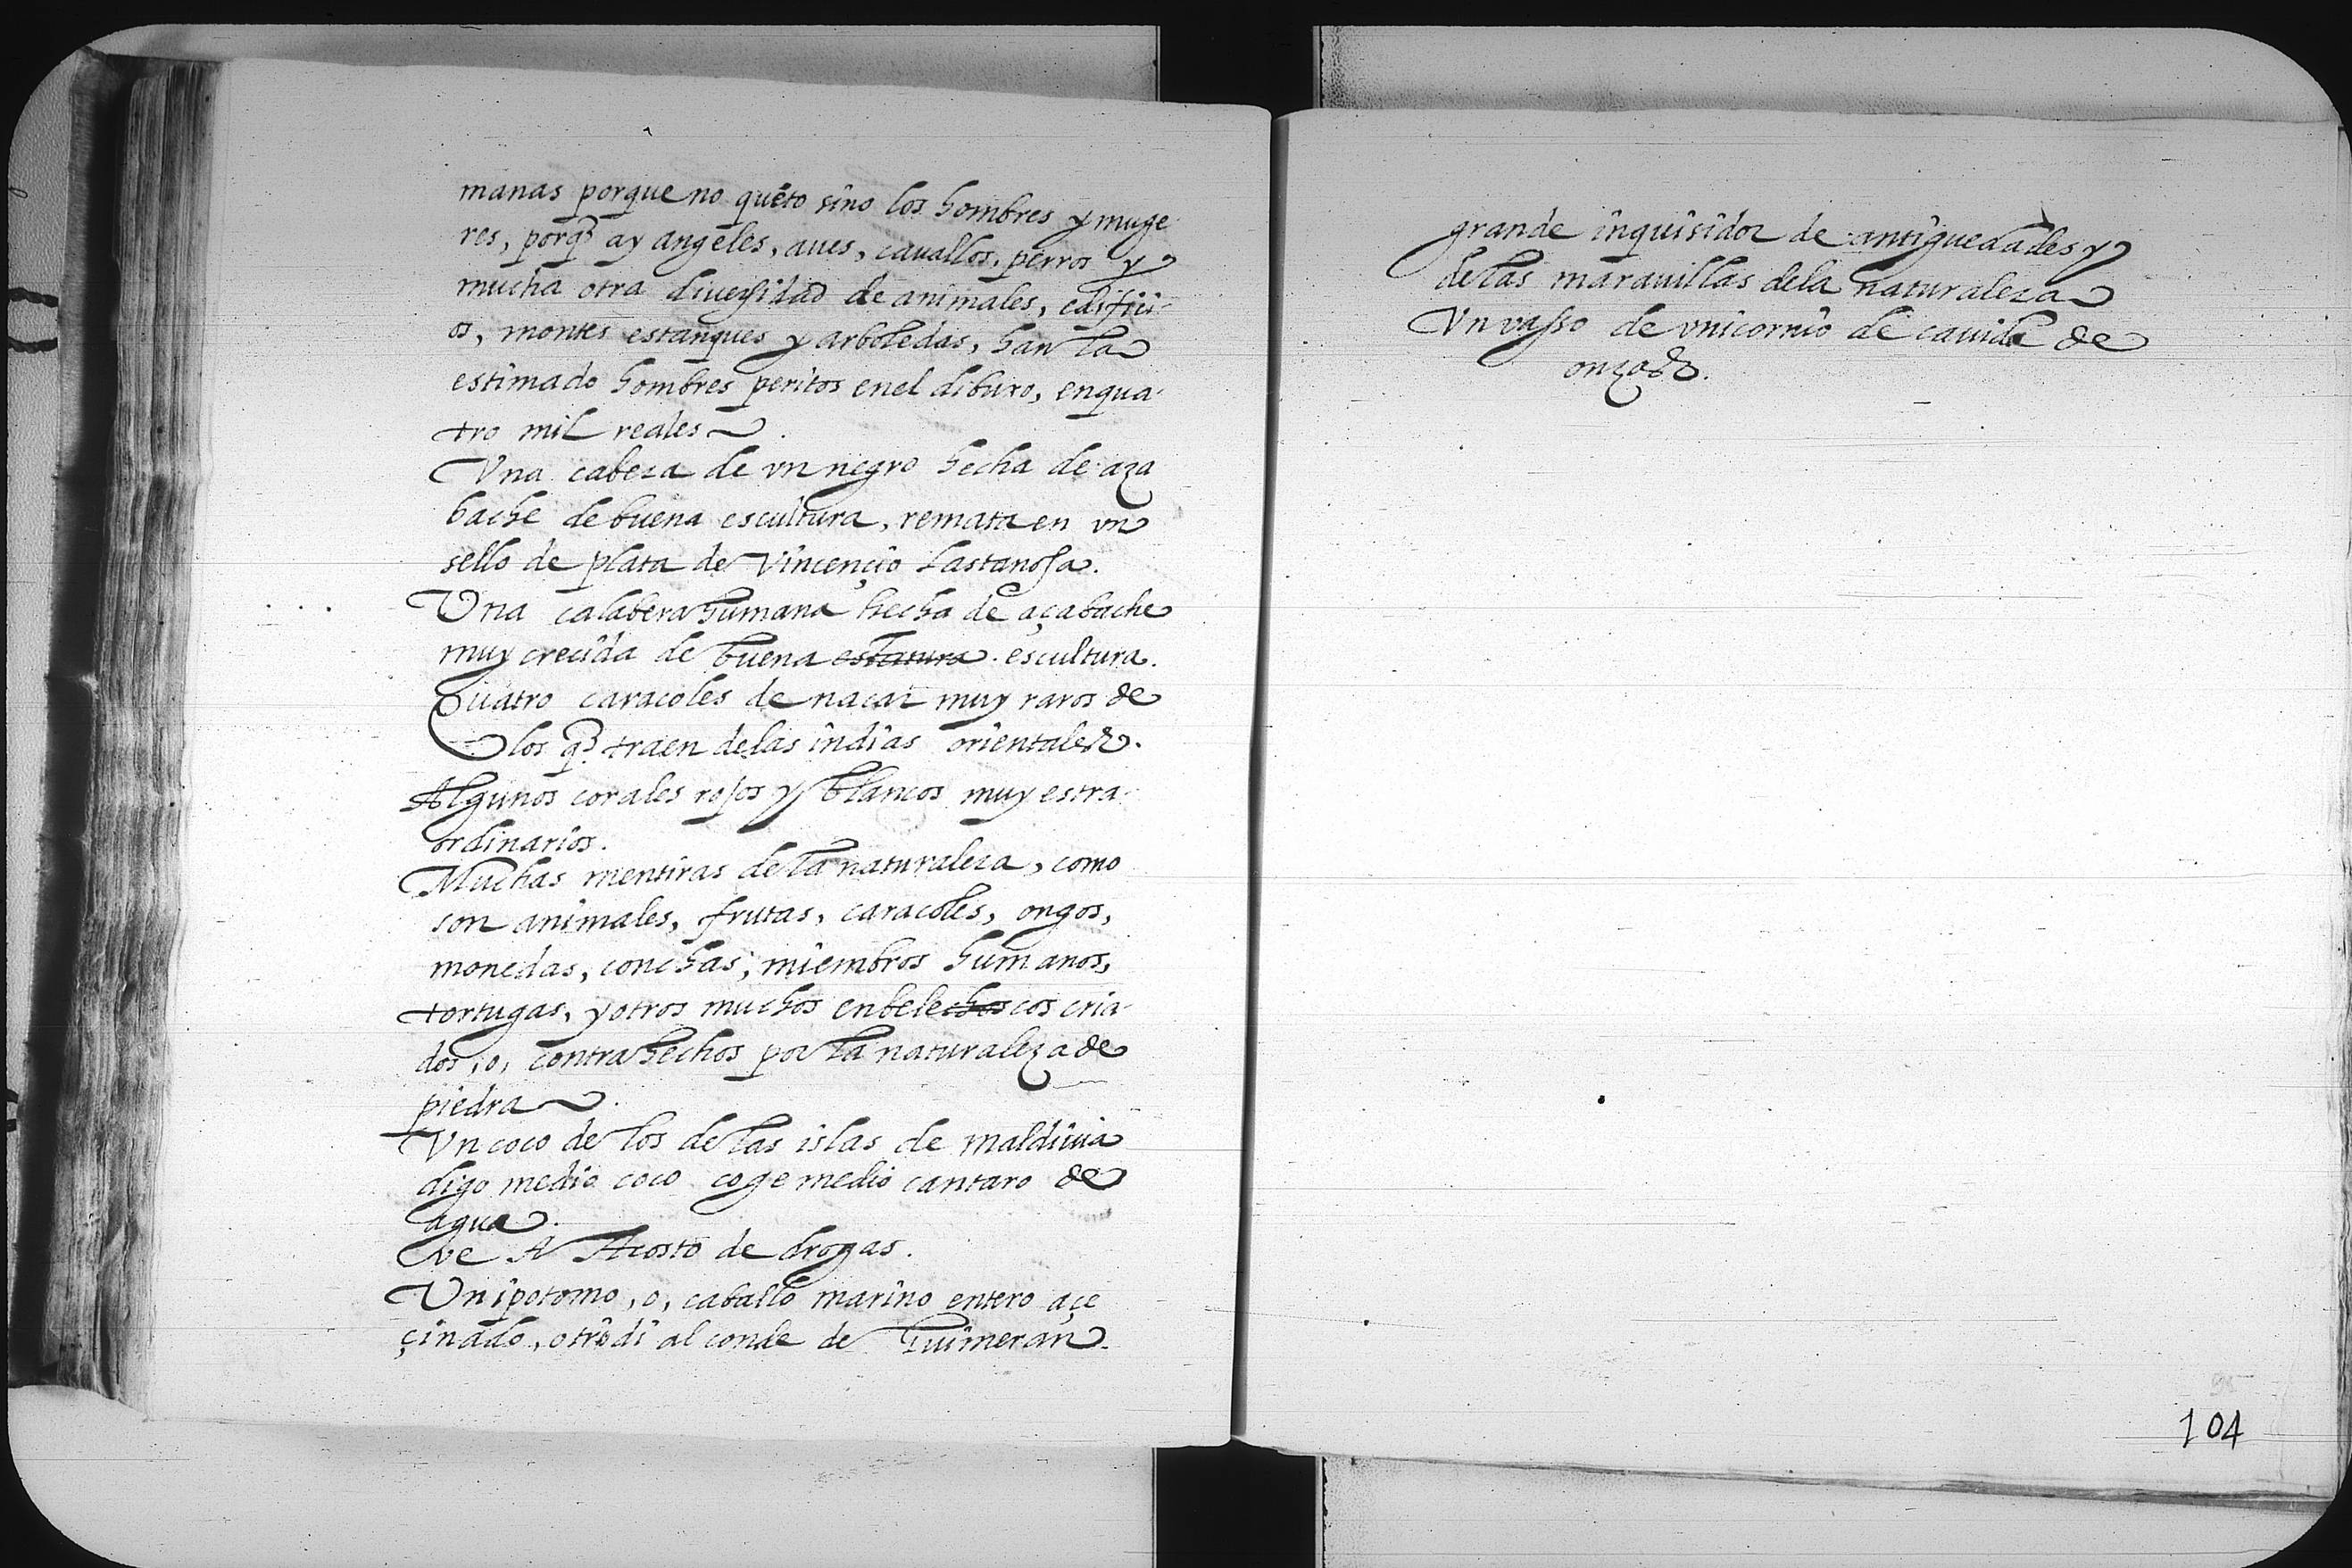 manas porque no quéto sino los hombres y muge
res, porq̃ ay angeles, aues, cauallos, perros y
mucha otra diuersidad de animales, edifici-
os, montes estanques y arboledas, han la
estimado hombres peritos enel dibuxo, en qua-
tro mil reales
Vna cabeza de vn negro hecha de aza
bache de buena escultura, remata en vn
sello de plata de Vincençio Lastanosa.
Vna calabera humana hecha de açabache
muy crecida de buena estatura. escultura.
Quatro caracoles de nacar muy raros de
los q̃ traen delas indias orientales.
Algunos corales rojos y blancos muy estra-
ordinarios.
Muchas mentiras de la naturaleza, como
son animales, frutas, caracoles, ongos,
monedas, conchas, miembros humanos,
tortugas, y otros muchos enbelechoscos cria-
dos, o, contrahechos por la naturaleza de
piedra.
Vn coco de los de las islas de maldiuia
digo medio coco coge medio cantaro de
agua.
ve A Acosto de drogas.
Vn ipotomo, o, caballo marino entero açe
çinado, otro di al conde de Guimeran
grande inquisidor de antiguedades y
de las marauillas dela naturaleza
Vn vasso de vnicornio de cauida de
onzas.
104